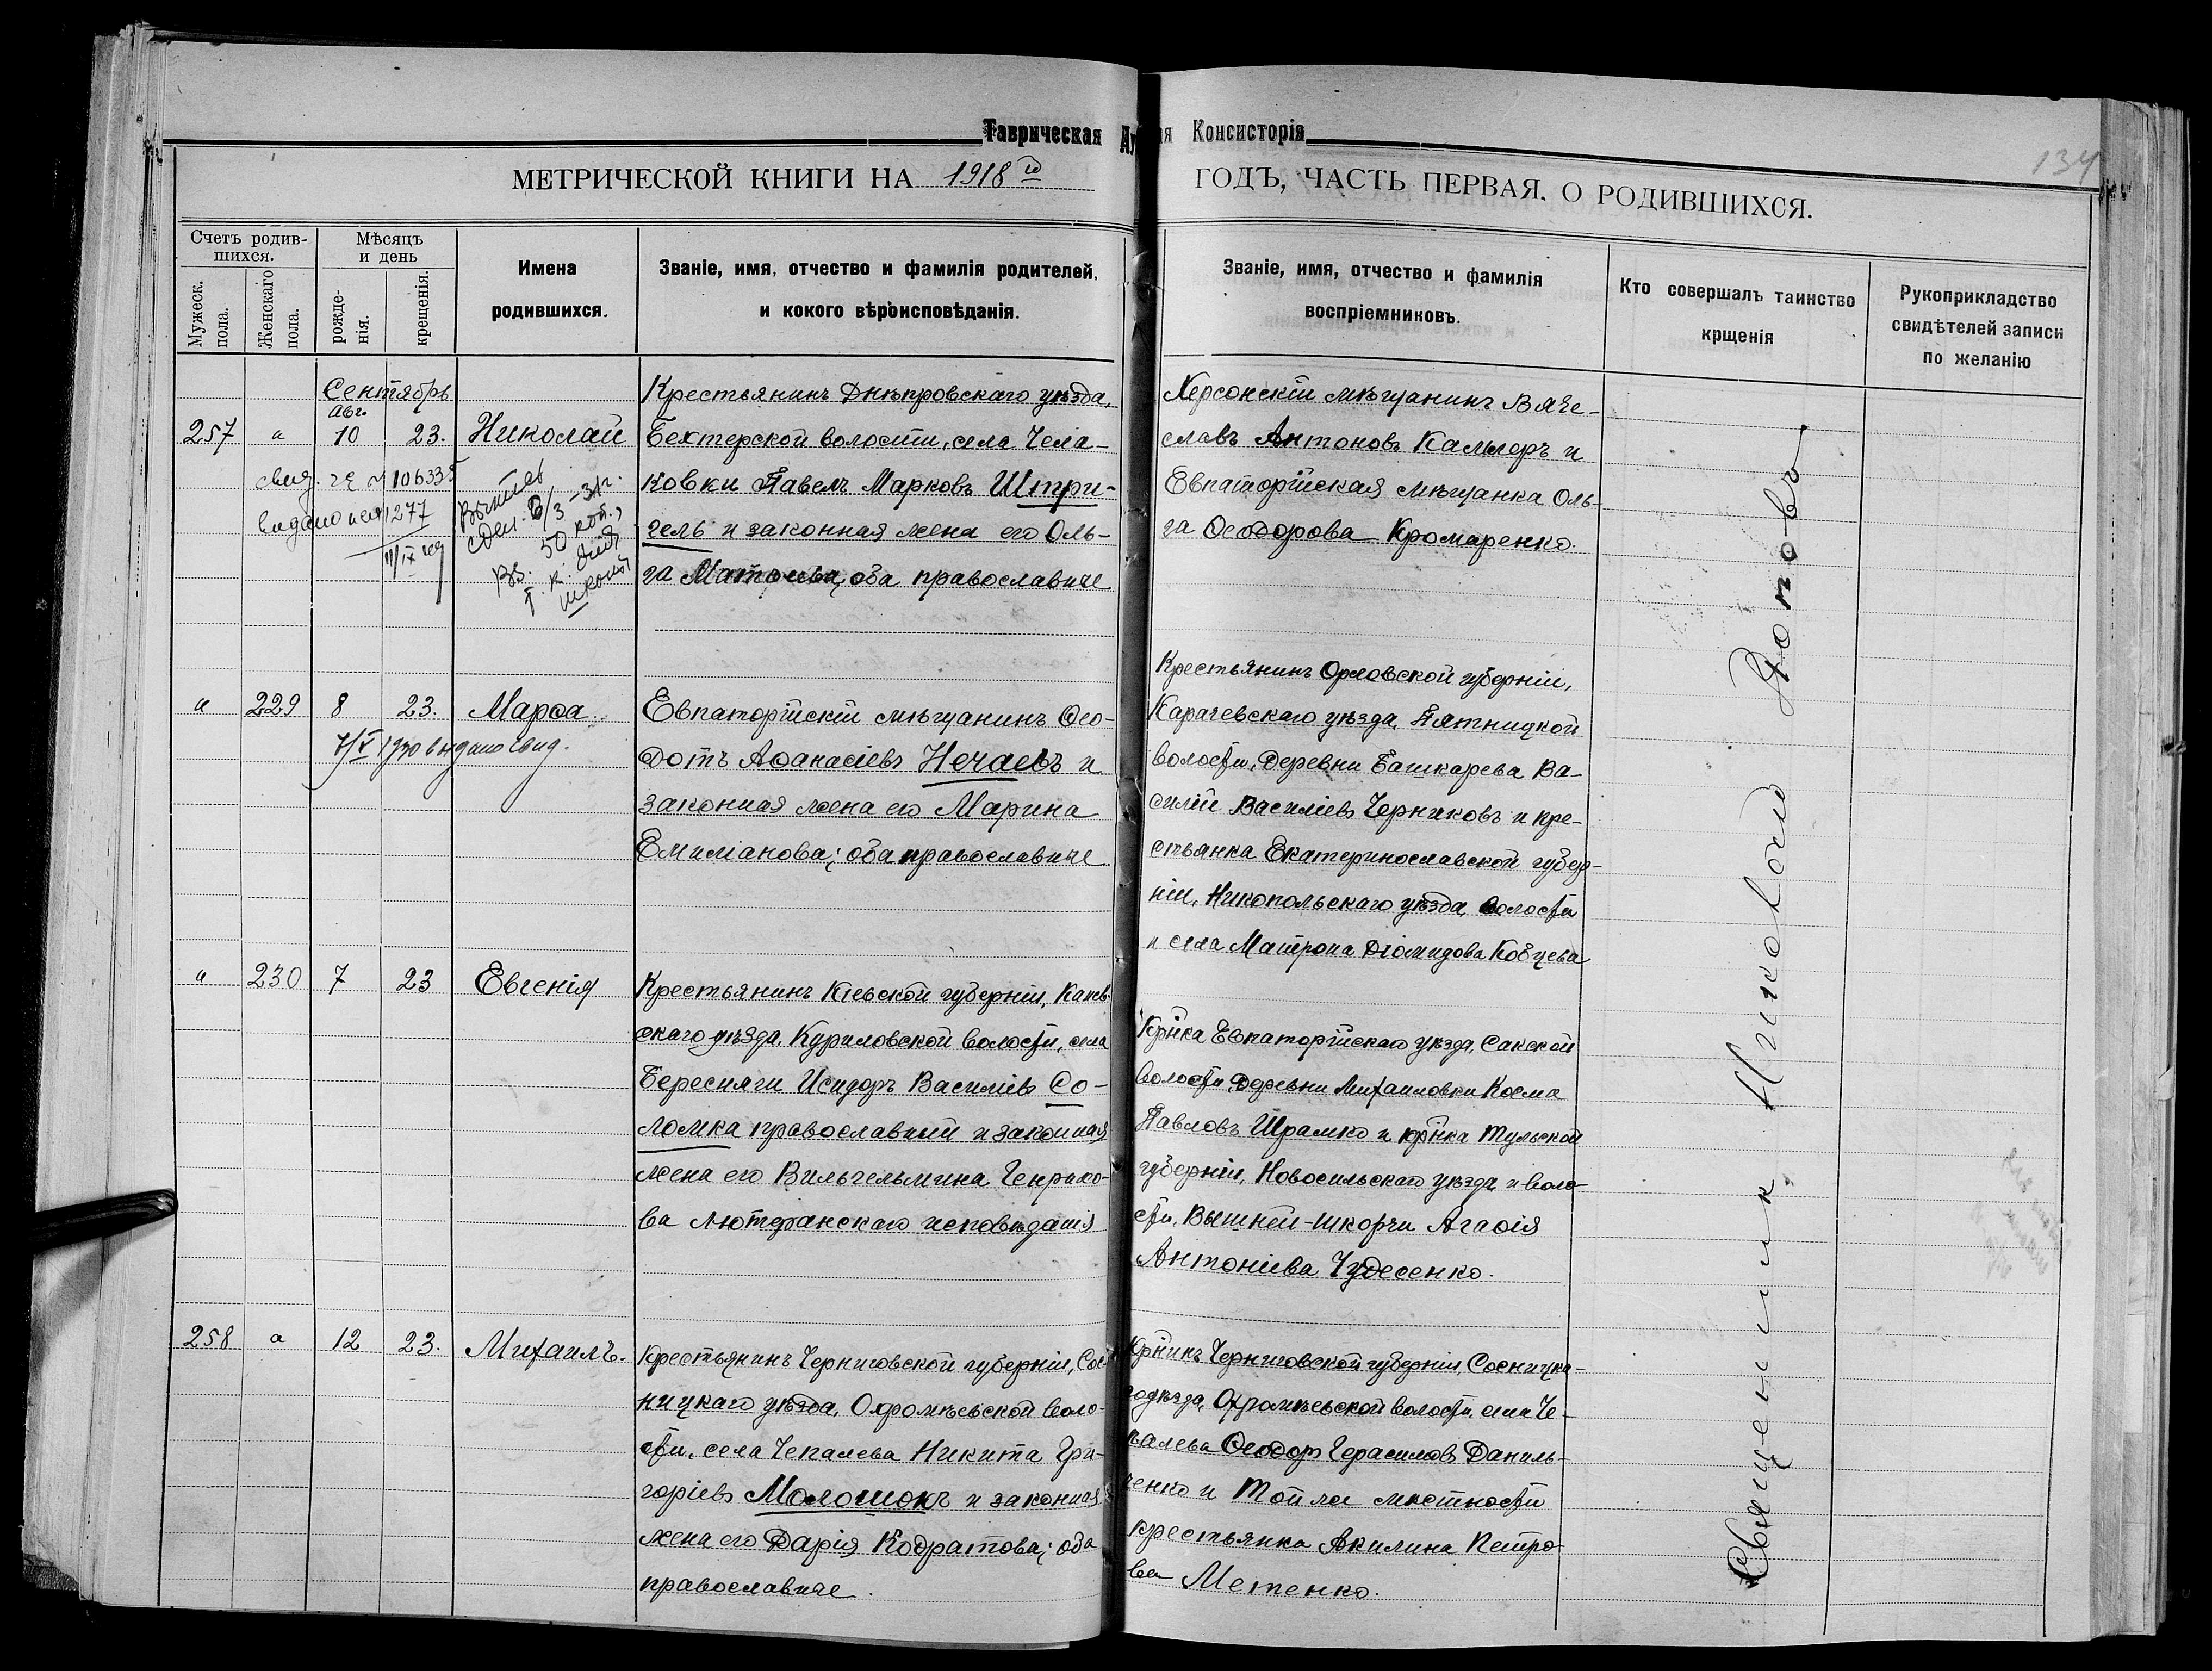 Таврическая Ду ая Консисторія
134
МЕТРИЧЕСКОЙ КНИГИ НА 1918 го ГОДЪ, ЧАСТЬ ПЕРВАЯ. О РОДИВШИХСЯ.
Счетъ родив-
шихся.
Мужеск. пола.
Женскаго пола.
Мѣсяцъ
и день
рожде-
нія.
крещенія.
Имена
родившихся.
Званіе, имя, отчество и фамилія родителей,
и кокого вѣроисповѣданія.
Званіе, имя, отчество и фамилія
воспріемниковъ.
Кто совершалъ таинство
крщенія
Рукоприкладство
свидѣтелей записи
по желанію
Сентябрь
авг.
257 " 10 23. Николай
свид.
видано
1277
Крестьянинъ Днѣпровскаго уѣзда,
Бехтерской волости, села Чела-
ковки Павелъ Марковъ Штри-
гель и законная жена его Оль-
га Матѳиева, оба православные
Херсонскій мѣщанинъ Вяче-
славъ Антоновъ Кальперъ и
Евпаторійская мѣщанка Оль-
га Ѳеодорова Кромаренко
" 229 8 23. Марѳа
выдано свид.
Евпаторійскій мѣщанинъ Ѳео-
дотъ Аѳанасіевъ Нечаевъ и
законная жена его Марина
Емиліанова; оба православные
Крестьянинъ Орловской губерніи,
Карачевскаго уѣзда, Пятницкой
волости, деревни Башкарева Ва-
силій Василіевъ Черниковъ и кре-
стьянка Екатеринославской губер-
ніи, Никопольскаго уѣзда, волости
и села Матрона Діомидова Кобцева
" 230 7 23 Евгенія
Крестьянинъ Кіевской губерніи, Канев-
скаго уѣзда, Куриловской волости, села
Бересняги Исидоръ Василіевъ Со-
ломка православный и законная
жена его Вильгельмина Генрихо-
ва лютеранскаго исповѣданія
Кр-нка Евпаторійскаго уѣзда, Сакской
волости, деревни Михаиловки Косма
Павловъ Шрамко и кр-нка Тульской
губерніи, Новосильскаго уѣзда и воло-
сти, Вышней-Шкорчи Агаѳія
Антоніева Чудесенко.
258 " 12 23. Михаилъ.
Крестьянинъ Черниговской губерніи, Сос-
ницкаго уѣзда, Охромѣевской воло-
сти, села Чепалева Никита Гри-
горіевъ Молошокъ и законная
жена его Дарія Кодратова; оба
православные.
Кр-нинъ Черниговской губерніи, Сосницка-
го уѣзда, Охромѣевской волости, села Че-
палева Ѳеодоръ Герасимовъ Даниль-
ченко и той же мѣстности
крестьянка Акилина Петро-
ва Метенко.
Священникъ Николай Поповъ